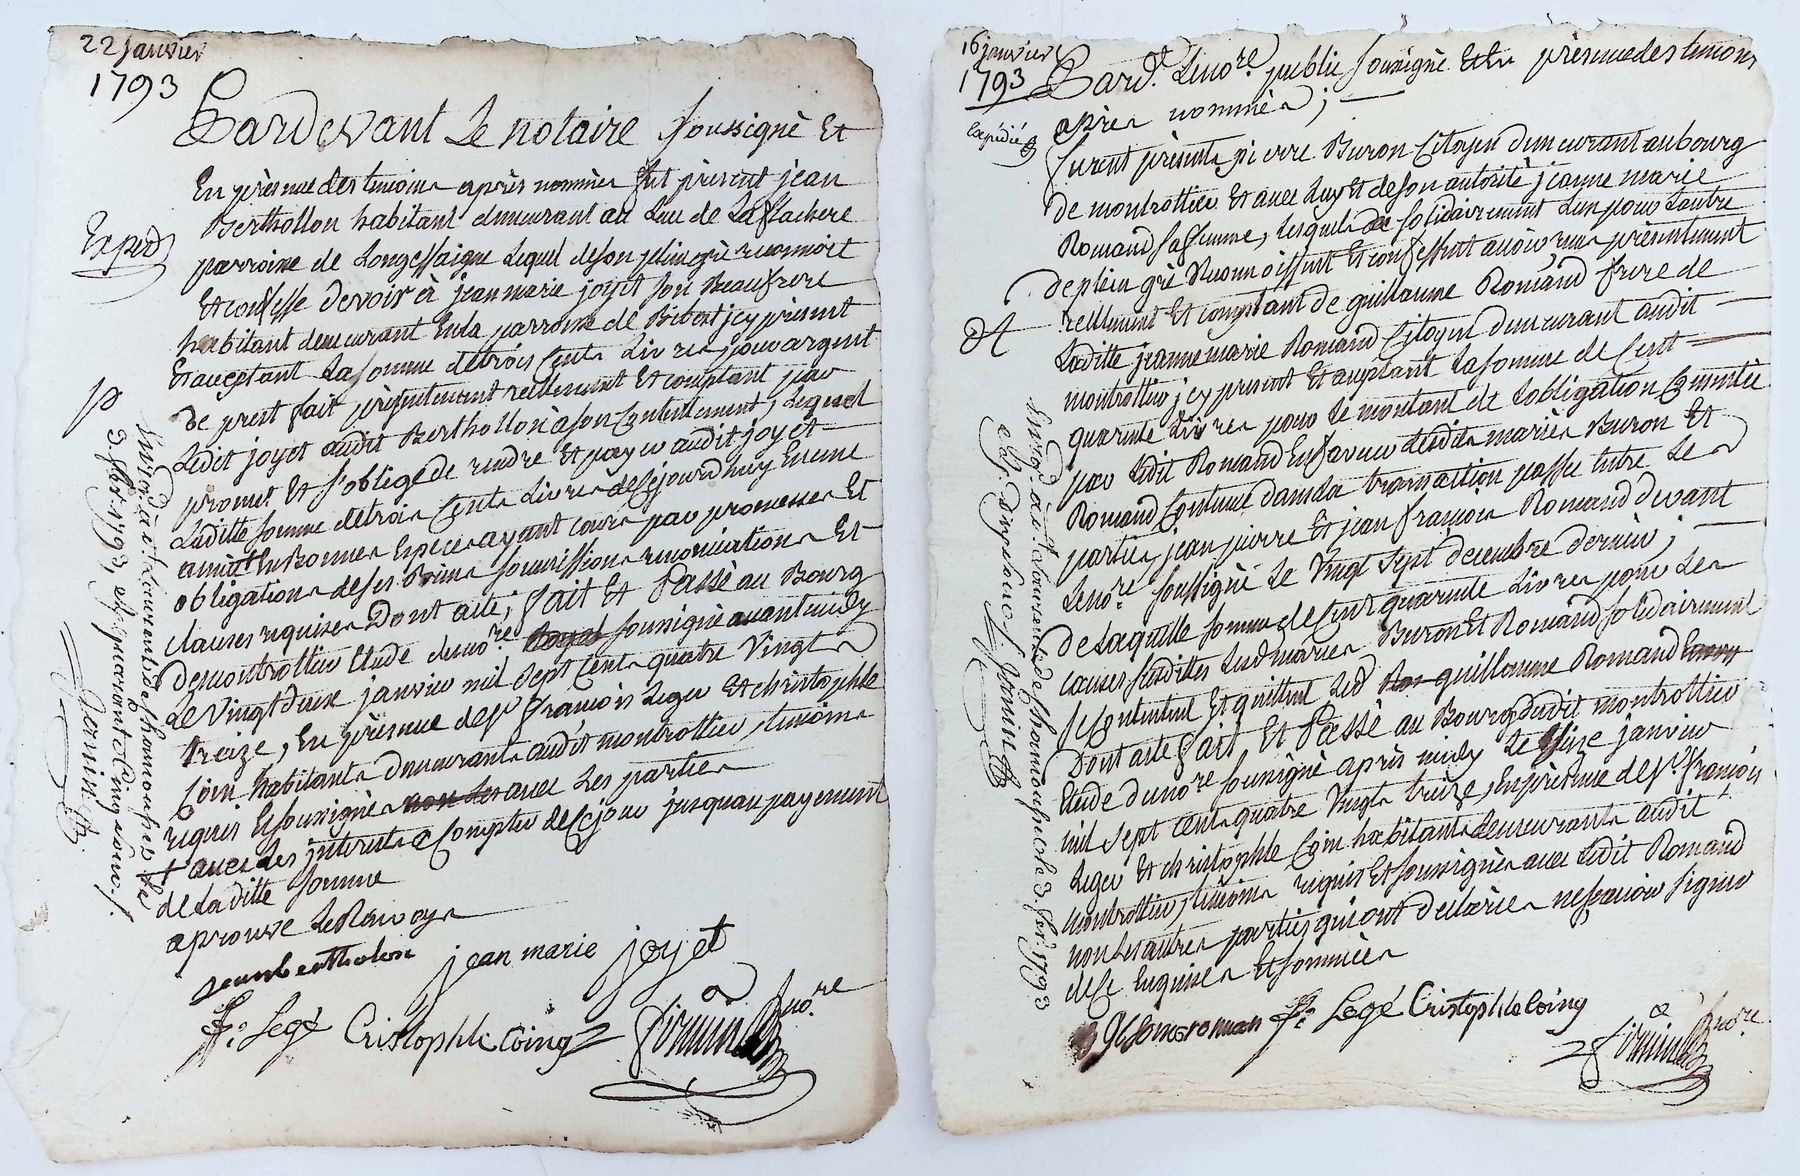 22 janvier
1793
Pardevant Le notaire soussigné Et
En présence des temoins après nommés fut présent jean
Berthollon habitant demeurant au Lieu de La flachere
parroisse de Longessaigne Lequel de son plein gré reconnoit
Et confesse devoir à jean marie joyet son Beaufrere
habitant demeurant En la parroisse de Bibost jcy présent
Et acceptant La somme de trois Cents Livres pour argent
de prest fait présentement réellement Et comptant par
Ledit joyet audit Berthollon à son Contentement, Lequel
promet Et s'oblige de rendre Et payer audit joyet
Laditte somme de trois Cents Livres de Cejourdhuy En une
année En Bonnes Especes ayant cours par promesses Et
obligations de ses Biens soumissions renonciations Et
clauses requises Dont acte; fait Et Passé au Bourg
de montrottier Etude du nore. royal soussigné avant midy
Le Vingt deux janvier mil sept Cents quatre Vingt
treize, En présence de sr. françois Leger Et christophle
Coin habitants demeurants audit montrottier, temoins
requis Et soussignés non Les avec Les parties
+ avec Les jnterets à Compter de Cejour jusqu'au payement
de Laditte somme
aprouve Le Renvoy
jean bertholon
jean marie joyet
fs. Legé Cristophle Coing
nore.
Exped
Enrgré. à st. Laurent de chamousset Le
3 fer. 1793, Rçu quarante Cinq sous /.
16 janvier
1793
Pard.t Le nore. public soussigné Et En présence des temoins
après nommés;
Expédié
furent présents pierre Buron Citoyen demeurant au bourg
de montrottier Et avec Luy Et de son autorité jeanne marie
Romand sa femme, Lesquels de solidairement L'un pour L'autre
de plein gré Reconnoissent Et confessent avoir reçu présentement
réellement Et comptant de guillaume Romand frere de
Laditte jeanne marie Romand Citoyen demeurant audit
montrottier jcy present Et acceptant La somme de Cent
quarante Livres pour Le montant de L'obligation Consentie
par Ledit Romand En faveur desdits mariés Buron Et
Romand Contenue dans La transaction passée Entre Les
parties, jean pierre Et jean françois Romand devant
Le nore. soussigné Le Vingt sept decembre dernier;
de Laquelle somme de Cent quarante Livres pour Les
causes susdittes Lesd mariés Buron Et Romand solidairement
se Contentent Et quittent Led Rom guillaume Romand
Dont acte fait Et Passé au Bourg dudit montrottier
Etude du nore. soussigné après midy Le seize janvier
mil sept cents quatre Vingt treize, En présence de sr. françois
Leger Et christophle Coin habitants demeurants audit
montrottier, témoins requis Et soussignés avec Ledit Romand
non Les autres parties qui ont declarées ne sçavoir signer
de Ce Enquises Et sommées
fs. Legé Cristophle Coing
nore.